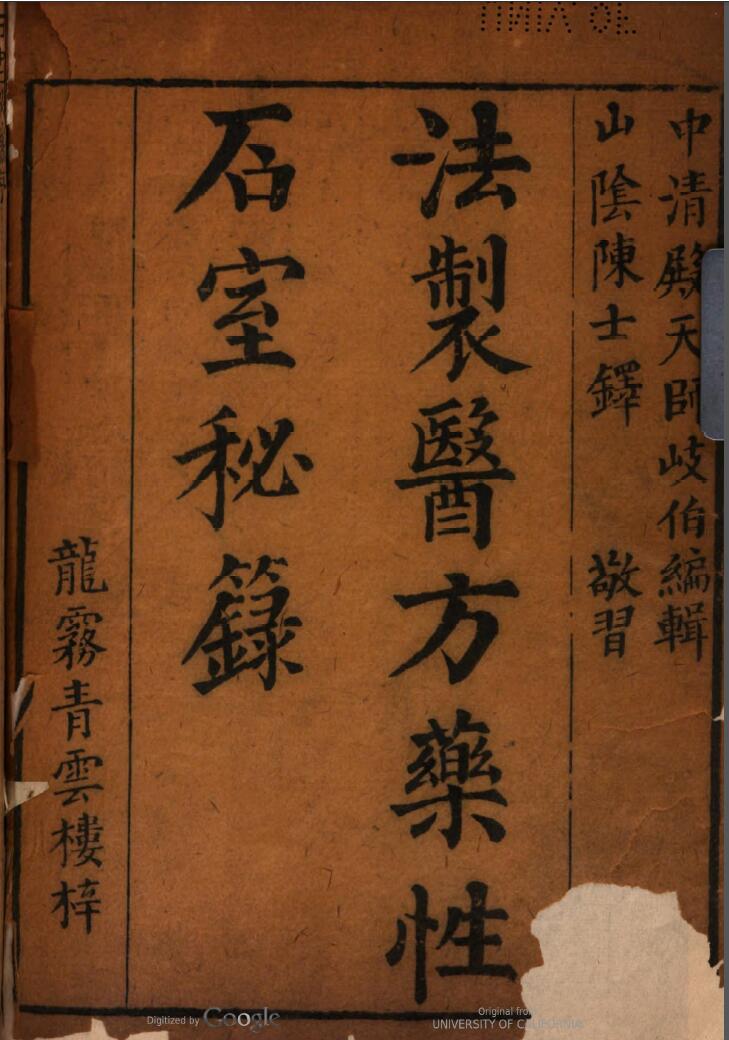 中清殿天師岐伯編輯
山陰陳士鐸 敬習
法製醫方藥性
石室秘籙
龍霧青雲樓梓
Digitized by Google
Original from
UNIVERSITY OF CALIFORNIA